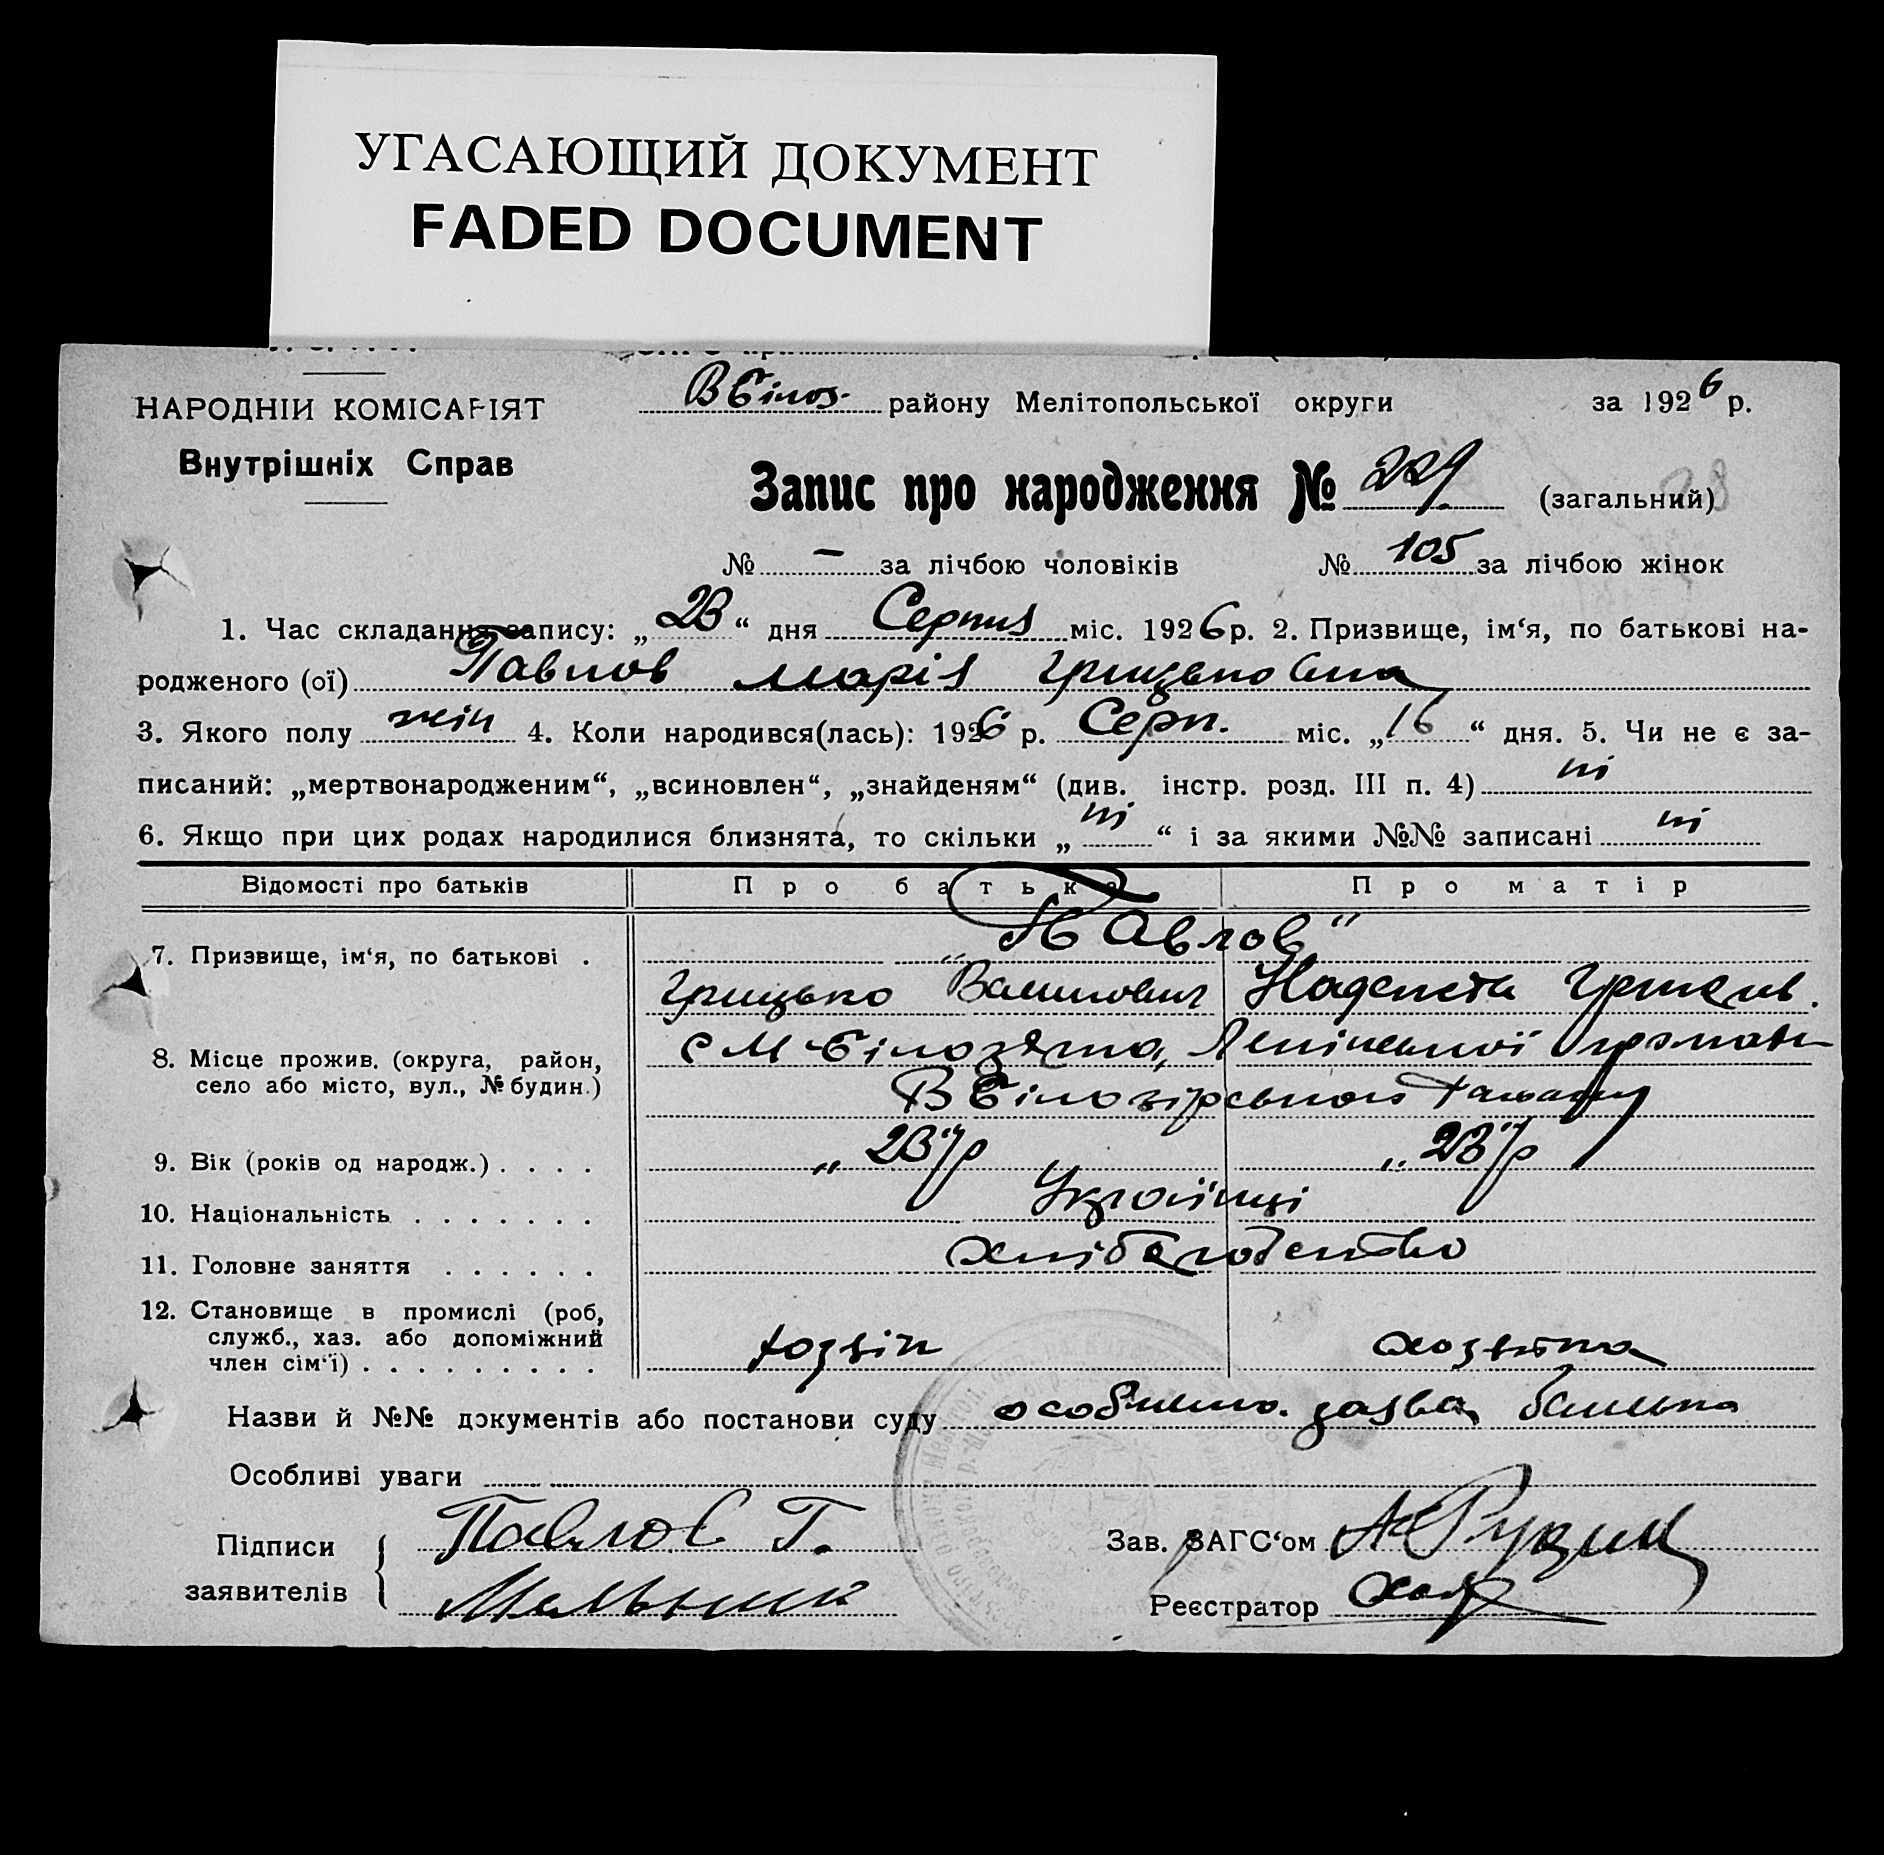 УГАСАЮЩИЙ ДОКУМЕНТ
FADED DOCUMENT
НАРОДНІЙ КОМІСАРІЯТ
Внутрішніх Справ
В Білоз. району Мелітопольської округи за 1926 р.
Запис про народження № 229 (загальний)
№ — за лічбою чоловіків № 105 за лічбою жінок
1. Час складання запису: „23“ дня Серпня міс. 1926 р. 2. Призвище, ім‘я, по батькові на-
родженого (ої) Павлов Марія Грицьковна
3. Якого полу жін 4. Коли народився(лась): 1926 р. Серп. міс. „16“ дня. 5. Чи не є за-
писаний: „мертвонародженим“, „всиновлен“, „знайденям“ (див. інстр. розд. III п. 4) ні
6. Якщо при цих родах народилися близнята, то скільки „ні“ і за якими №№ записані ні
Відомості про батьків Про батька Про матір
7. Призвище, ім‘я, по батькові . „Павлов“
Грицько Надежда
8. Місце прожив. (округа, район, с М-Білозірка, Ленінської громади
село або місто, вул., № будин.) В Білозірського району
9. Вік (років од народж.) . . . . „23“ р „23“ р
10. Національність . . . . . . . Українці
11. Головне заняття . . . . . . хліборобство
12. Становище в промислі (роб,
служб., хаз. або допоміжний
член сім‘ї) . . . . . . . . . хозяїн хозяйка
Назви й №№ документів або постанови суду особиста заява батька
Особливі уваги
Підписи
заявителів
Павлов Г.
Мельник
Зав. ЗАГС‘ом
Реєстратор